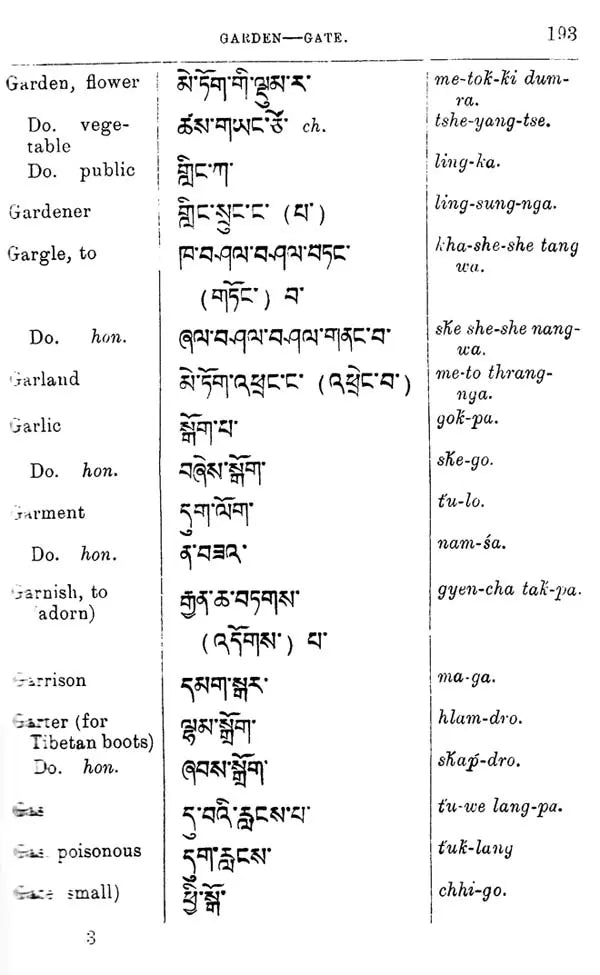 GARDEN—GATE. 193
Garden, flower མེ་ཏོག་གི་ལྡུམ་ར་ me-tok-ki dum-
ra.
Do. vege- ཚས་གཡང་ཙེ་ ch. tshe-yang-tse.
table
Do. public གླིང་ཀ་ ling-ka.
Gardener གླིང་སྲུང་ང་ (པ་) ling-sung-nga.
Gargle, to ཁ་བ་ཤལ་བ་ཤལ་བཏང་ kha-she-she tang
wa.
(གཏོང་) བ་
Do. hon. ཞལ་བ་ཤལ་བ་ཤལ་གནང་བ་ she she-she nang-
wa.
Garland མེ་ཏོག་འཕྲང་ང་ (འཕྲེང་བ་) me-to thrang-
nya.
Garlic སྒོག་པ་ gok-pa.
Do. hon. བཞེས་སྒོག་ she-go.
Garment དུག་ལོག་ tu-lo.
Do. hon. ན་བཟའ་ nam-śa.
Garnish, to རྒྱན་ཆ་བཏགས་ gyen-cha tak-pa.
adorn)
(འདོགས་) པ་
Garrison དམག་སྒར་ ma-ga.
Garter (for ལྷམ་སྒྲོག་ hlam-dro.
Tibetan boots)
Do. hon. ཞབས་སྒྲོག་ shap-dro.
Gas དུ་བའི་རླངས་པ་ tu-we lang-pa.
Gas poisonous དུག་རླངས་ tuk-lang
Gate small) ཕྱི་སྒོ་ chhi-go.
3